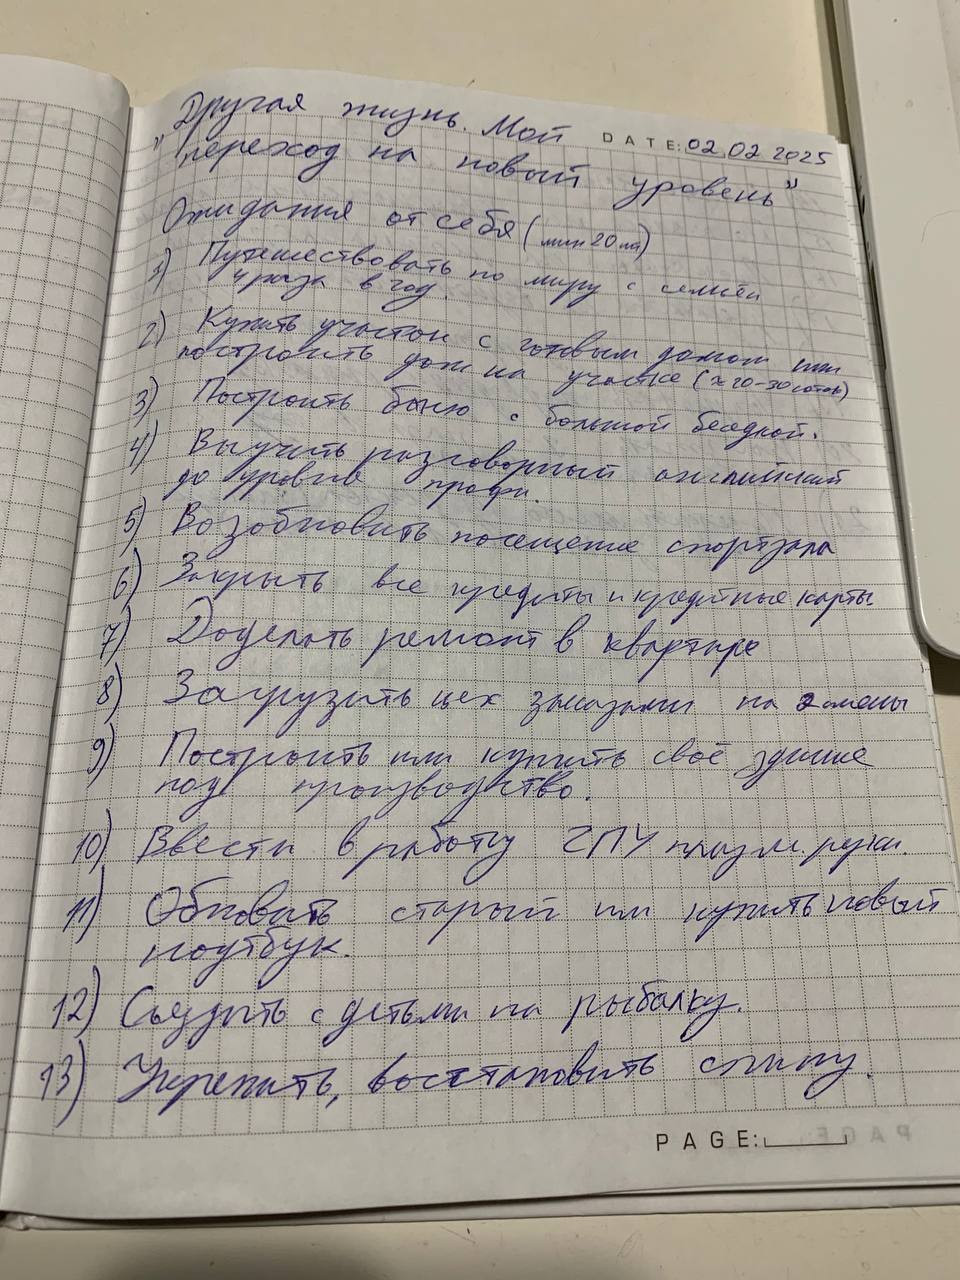 "Другая жизнь. Мой
DATE: 02.02 2025
переход на новый уровень"
Ожидания от себя (мин 20
1) Путешествовать по миру с семьёй
4 раза в год.
2) Купить участок с готовым домом или
построить дом на участке (≈20-30 соток)
3) Построить баню с большой беседкой.
4) Выучить разговорный английский
до уровня профи.
5) Возобновить посещение спортзала
6) Закрыть все кредиты и кредитные карты
7) Доделать ремонт в квартире
8) Загрузить цех заказами на 2 смены
9) Построить или купить своё здание
под производство.
10) Ввести в работу ЧПУ плазм. резки.
11) Обновить старый или купить новый
ноутбук.
12) Съездить с детьми на рыбалку.
13) Укрепить, восстановить спину.
PAGE: